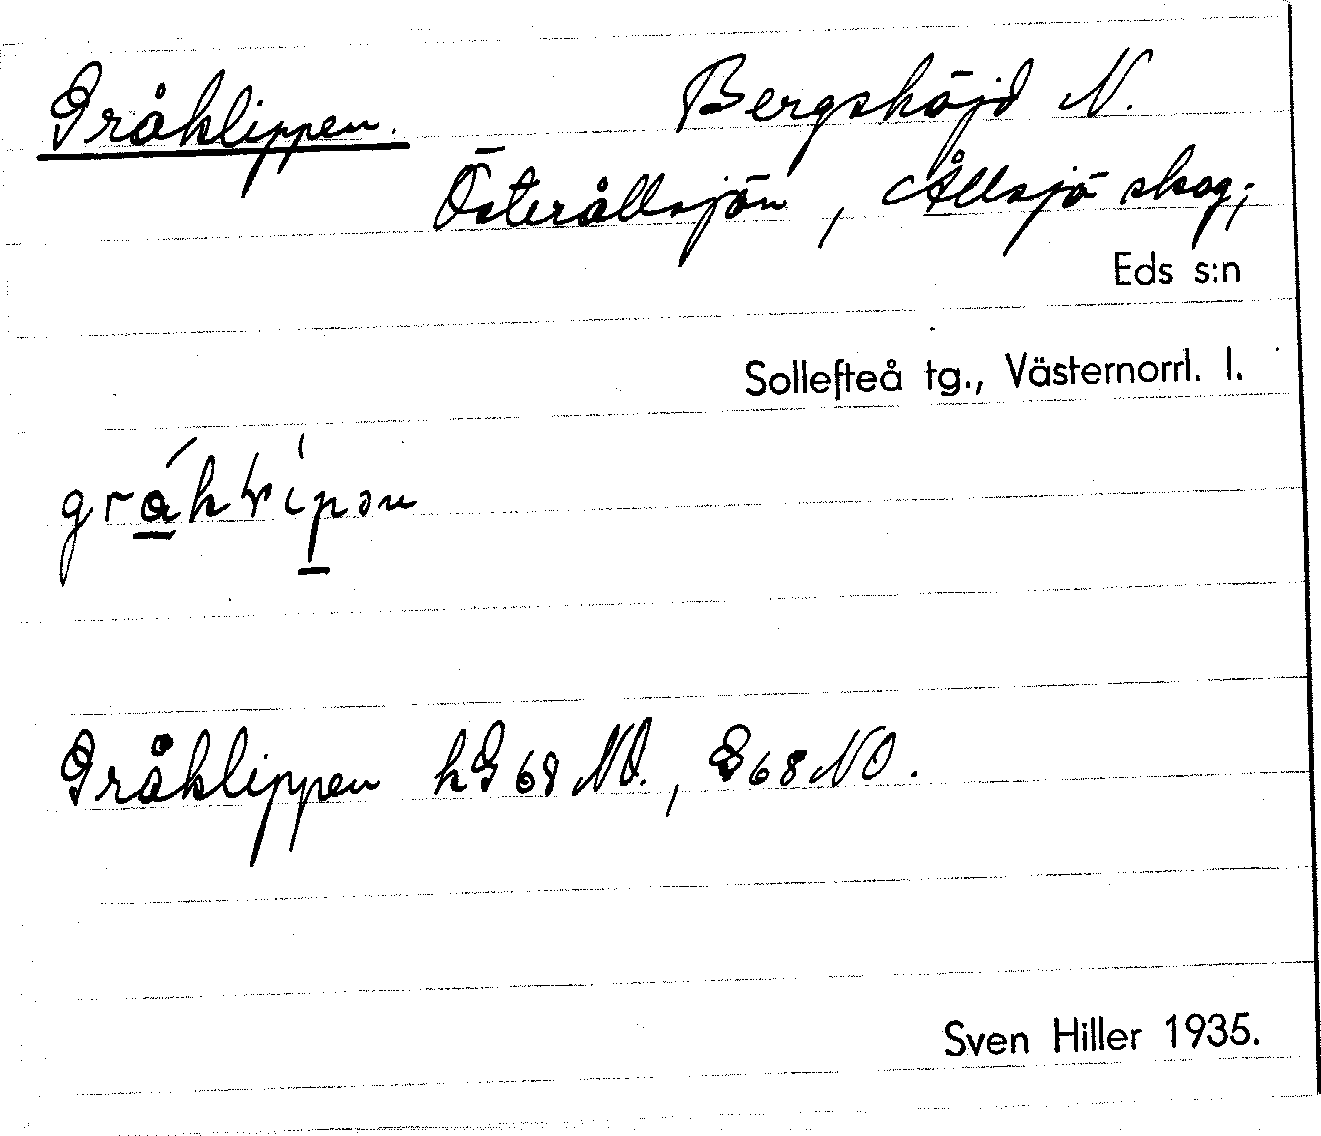 Gråklippen. Bergshöjd N.
Österållsjön, Ållsjö skog;
Eds s:n
Sollefteå tg., Västernorrl. l.
Gråklippen hG 68 NO., G 68 NO.
Sven Hiller 1935.